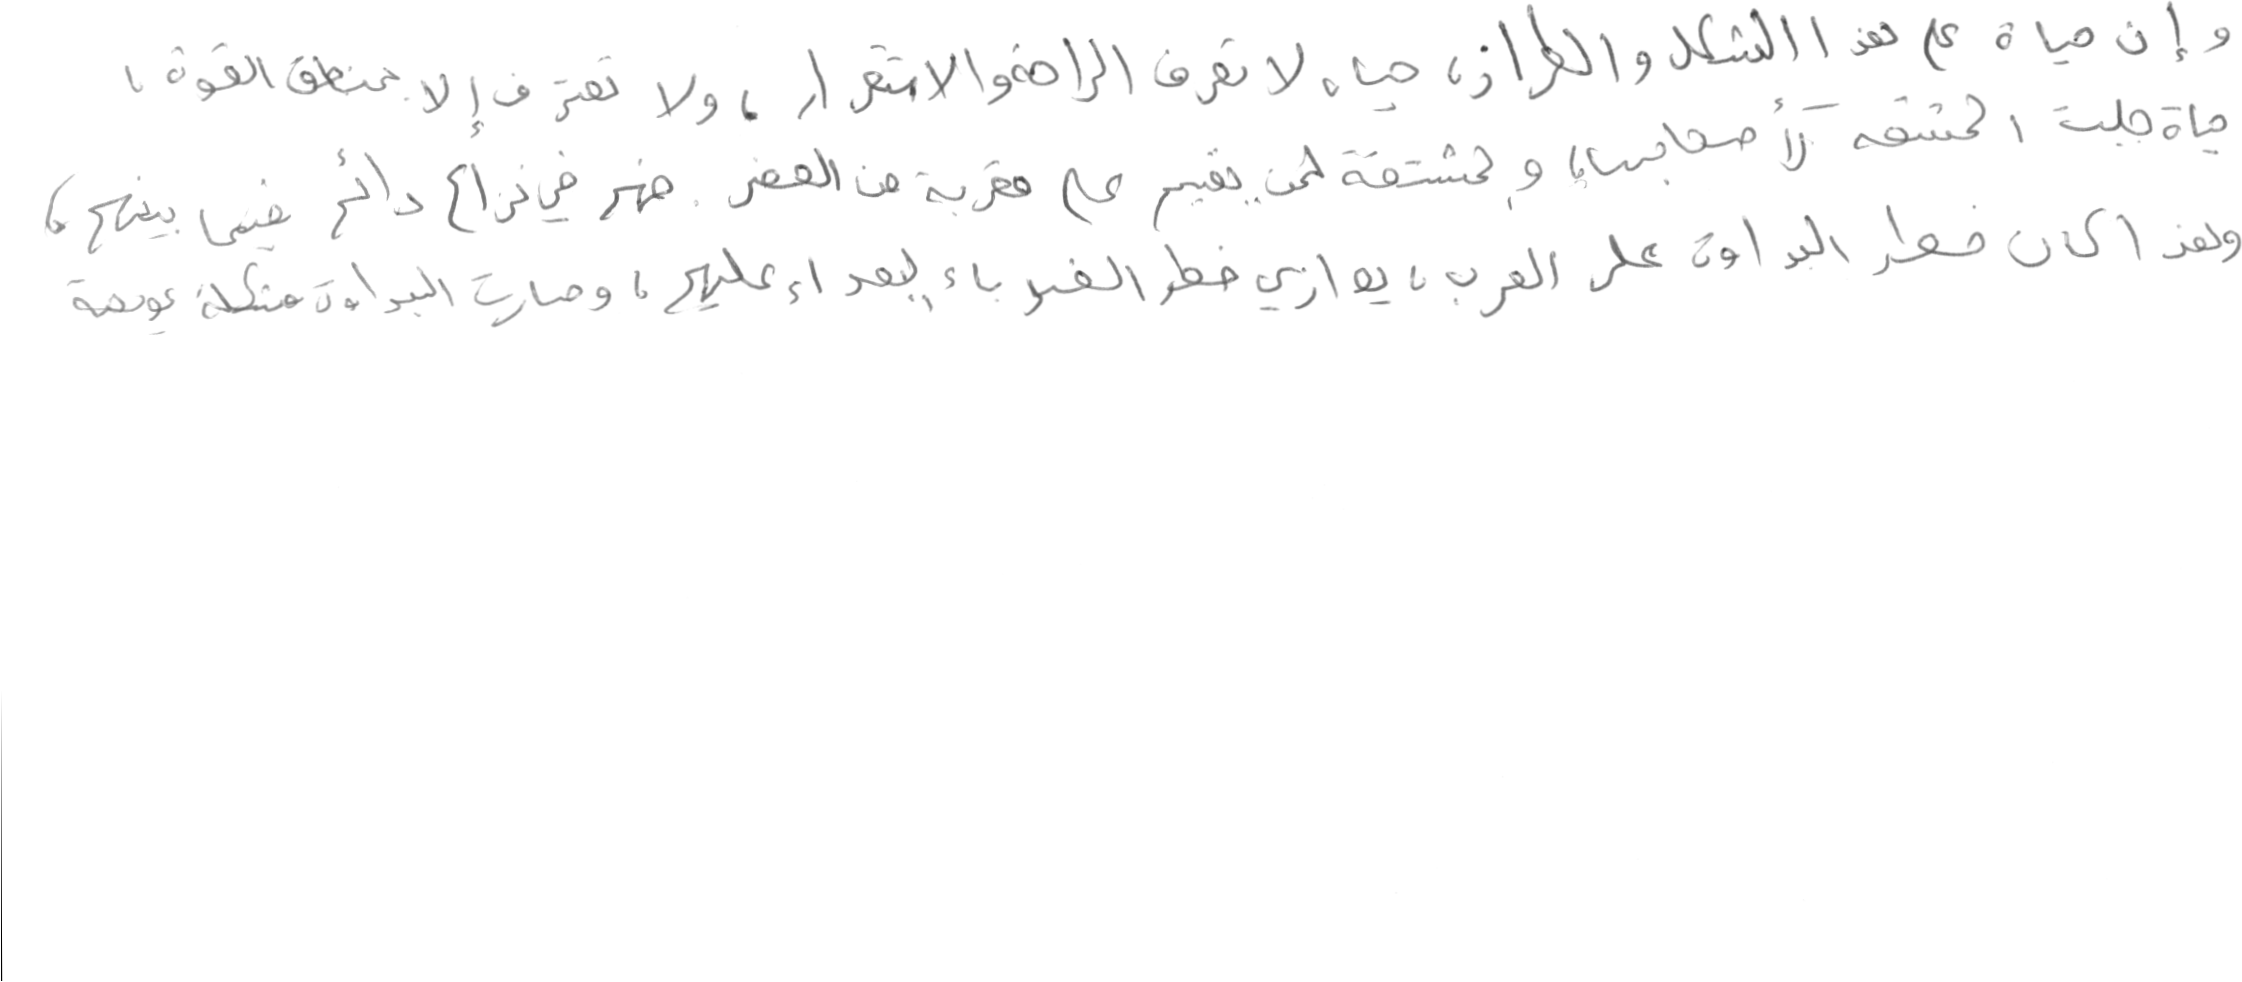 وإن حياة على هذا الشكل والطراز، حياة لا تعرف الراحة والاستقرار، ولا تعترف إلا بمنطق القوة،
حياة جلبت المشقة لأصحابها، والمشقة لمن يقيم على مقربة من الحضر. فهم في نزاع دائم فيما بينهم،
ولهذا كان خطر البداوة على العرب، يوازي خطر الغرباء البعداء عليهم، وصارت البداوة مشكلة عويصة